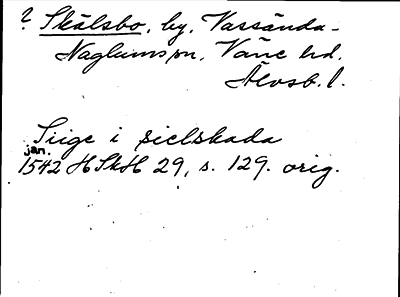 ? Skålsbo, by, Vassända-
Naglums sn, Väne hd.
Älvsb. l.
Siige i sielskada
jan.
1542 HSkH 29, s. 129. orig.